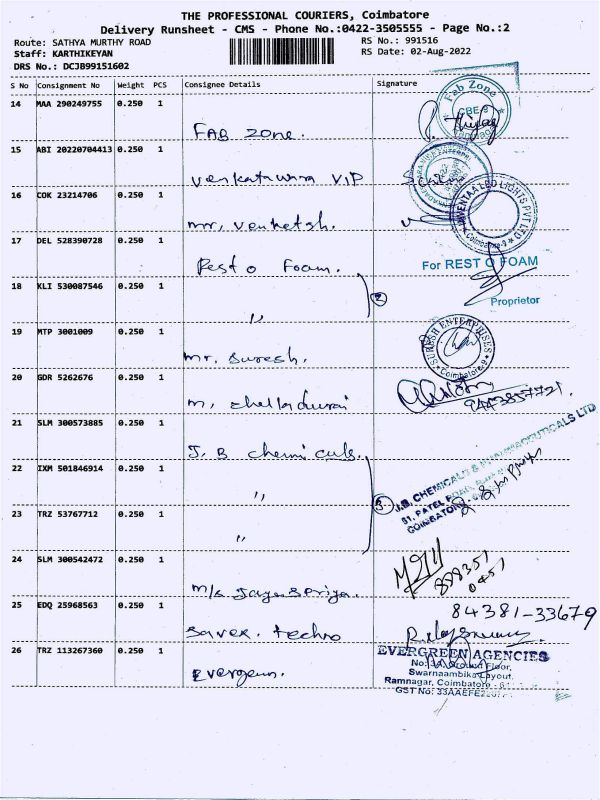 THE PROFESSIONAL COURIERS, Coimbatore
Delivery Runsheet - CMS - Phone No.:0422-3505555 - Page No.:2
Route: SATHYA MURTHY ROAD
RS No.: 991516
Staff: KARTHIKEYAN
RS Date: 02-Aug-2022
DRS No.: DCJB99151602
S No Consignment No Weight PCS Consignee Details Signature
14 MAA 290249755 0.250 1
FAB Zone.
Fab Zone
CBE-9
15 ABI 20220704413 0.250 1
VIP
16 COK 23214706 0.250 1
mr, Venketsh.
VENTAA LED LIGHTS PVT LTD
Coimbatore-9
17 DEL 528390728 0.250 1
Rest O Foam.
For REST O FOAM
Proprietor
18 KLI 530087546 0.250 1
"
2
19 MTP 3001009 0.250 1
mr. Suresh.
SURESH ENTERPRISES
Coimbatore-9
20 GDR 5262676 0.250 1
m, chelladurai
9443857721.
21 SLM 300573885 0.250 1
J. B chemicals.
J.B. CHEMICALS & PHARMACEUTICALS LTD
51, PATEL ROAD,
COIMBATORE
22 IXM 501846914 0.250 1
"
3
23 TRZ 53767712 0.250 1
"
24 SLM 300542472 0.250 1
M/s
888351
0451
25 EDQ 25968563 0.250 1
Savex. techno
84381-33679
26 TRZ 113267360 0.250 1
Evergreen.
EVERGREEN AGENCIES
Ground Floor,
Swarnaambika Layout,
Ramnagar, Coimbatore -
GST No: 33AAEFE